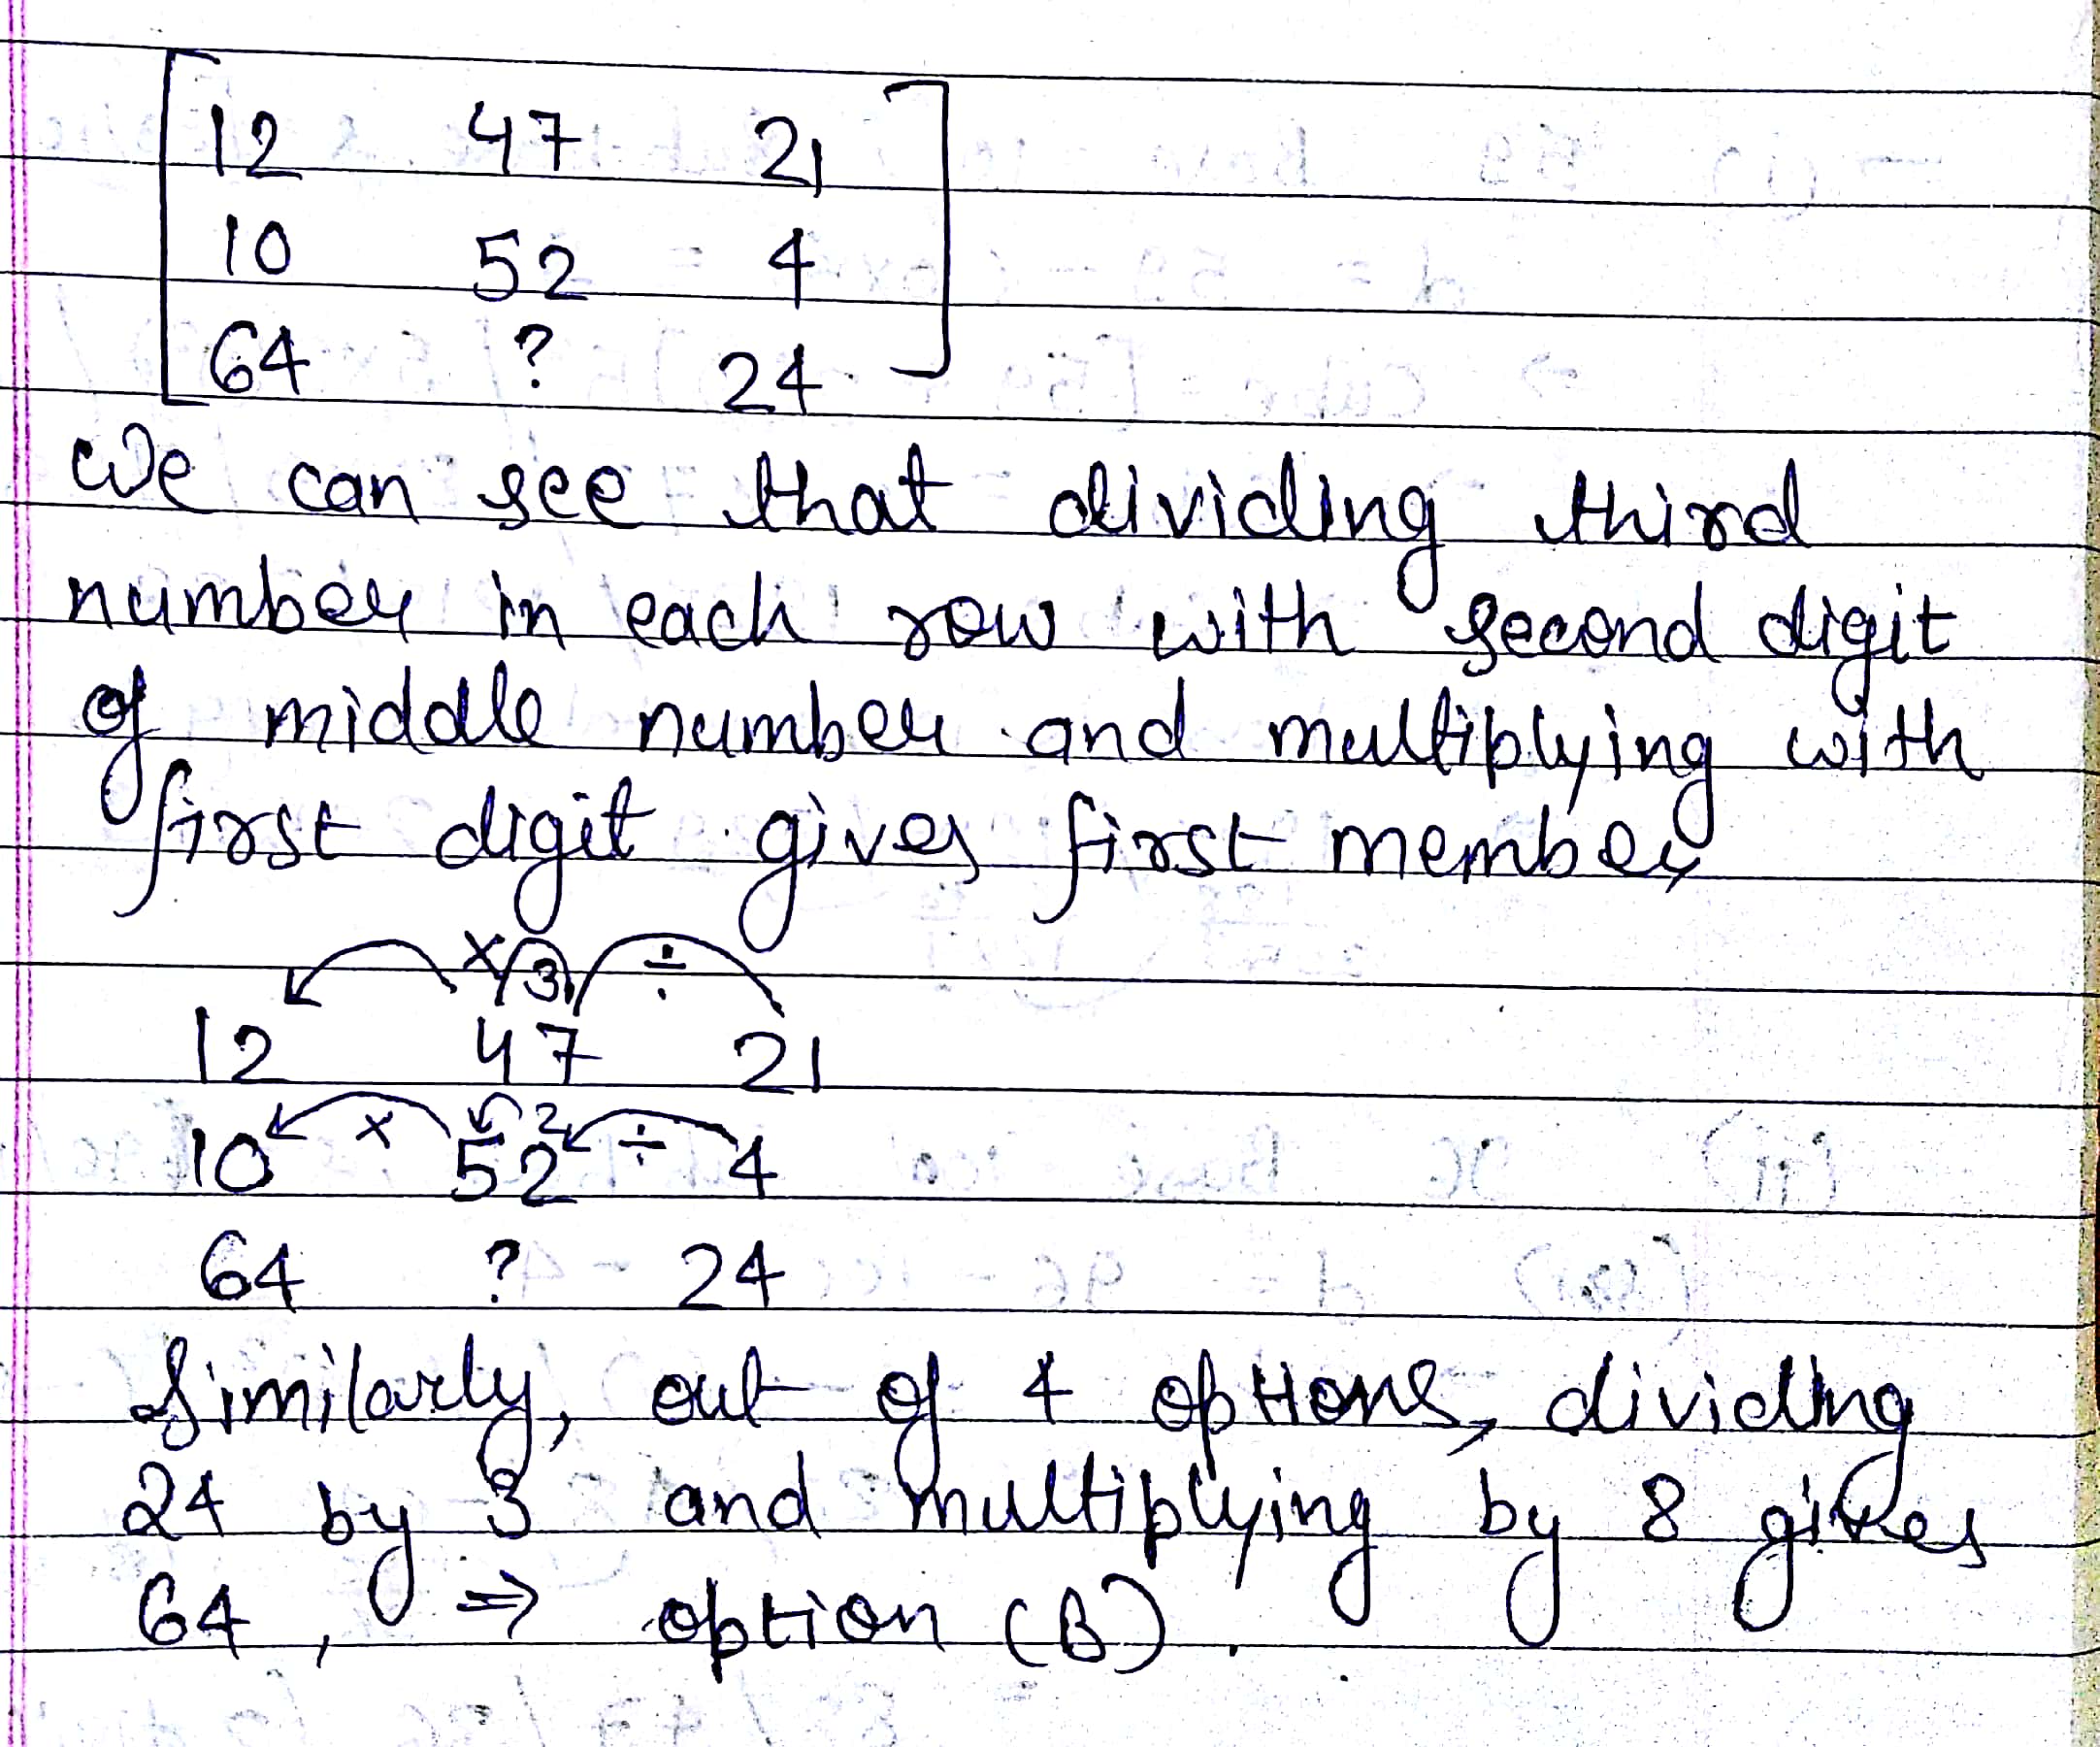 12 47 21
10 52 4
64 ? 24
We can see that dividing third
number in each row with second digit
of middle number and multiplying with
first digit gives first member
× 3 ÷
12 47 21
× 2 ÷
10 52 4
64 ? 24
Similarly, out of 4 options, dividing
24 by 3 and multiplying by 8 gives
64, ⇒ option (B).